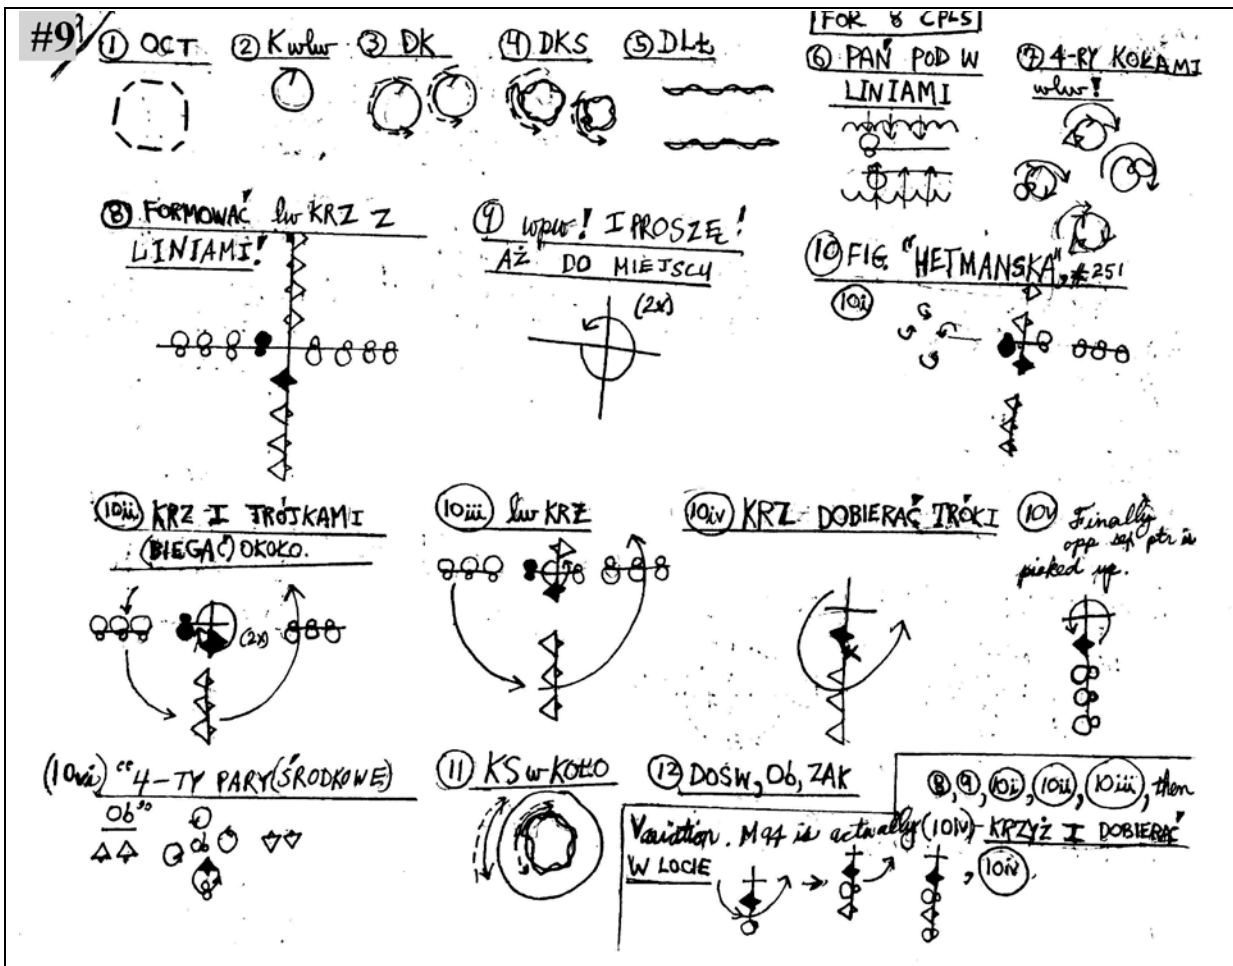 #9
① OCT
② K wlw
③ DK
④ DKS
⑤ DLŁ
FOR 8 CPLS
⑥ PAŃ POD W
LINIAMI
⑦ 4-RY KOŁAMI
wlw!
⑧ FORMOWAĆ lw KRZ Z
LINIAMI!
⑨ wpw! I PROSZĘ!
AŻ DO MIEJSCU
(2x)
⑩ FIG. "HETMAŃSKA", #251
10i
10ii KRZ I TRÓJKAMI
(BIEGAĆ) OKOŁO.
(2x)
10iii lw KRZ
10iv KRZ DOBIERAĆ TRÓKI
10v Finally
opp sep ptr is
picked up.
(10vi) "4-TY PARY (ŚRODKOWE)
Ob"
⑪ KS w KOŁO
⑫ DOŚW, Ob, ZAK
Variation. M#4 is actually
W LOCIE
⑧, ⑨, 10i, 10ii, 10iii, then
(10iv) - KRZYŻ I DOBIERAĆ
, 10iv.